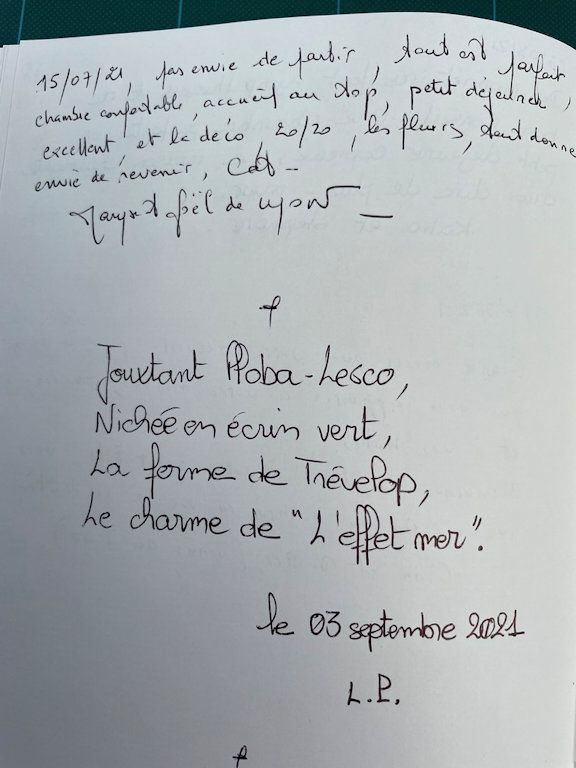 15/07/21, pas envie de partir, tout est parfait
chambre confortable, accueil au top, petit déjeuner,
excellent, et la déco, 20/20, les fleurs, tout donne
envie de revenir, 
de Lyon
Jouxtant Ploba-Lesco,
Nichée en écrin vert,
La forme de Trévelop,
Le charme de "L'effet mer".
le 03 septembre 2021
L.P.